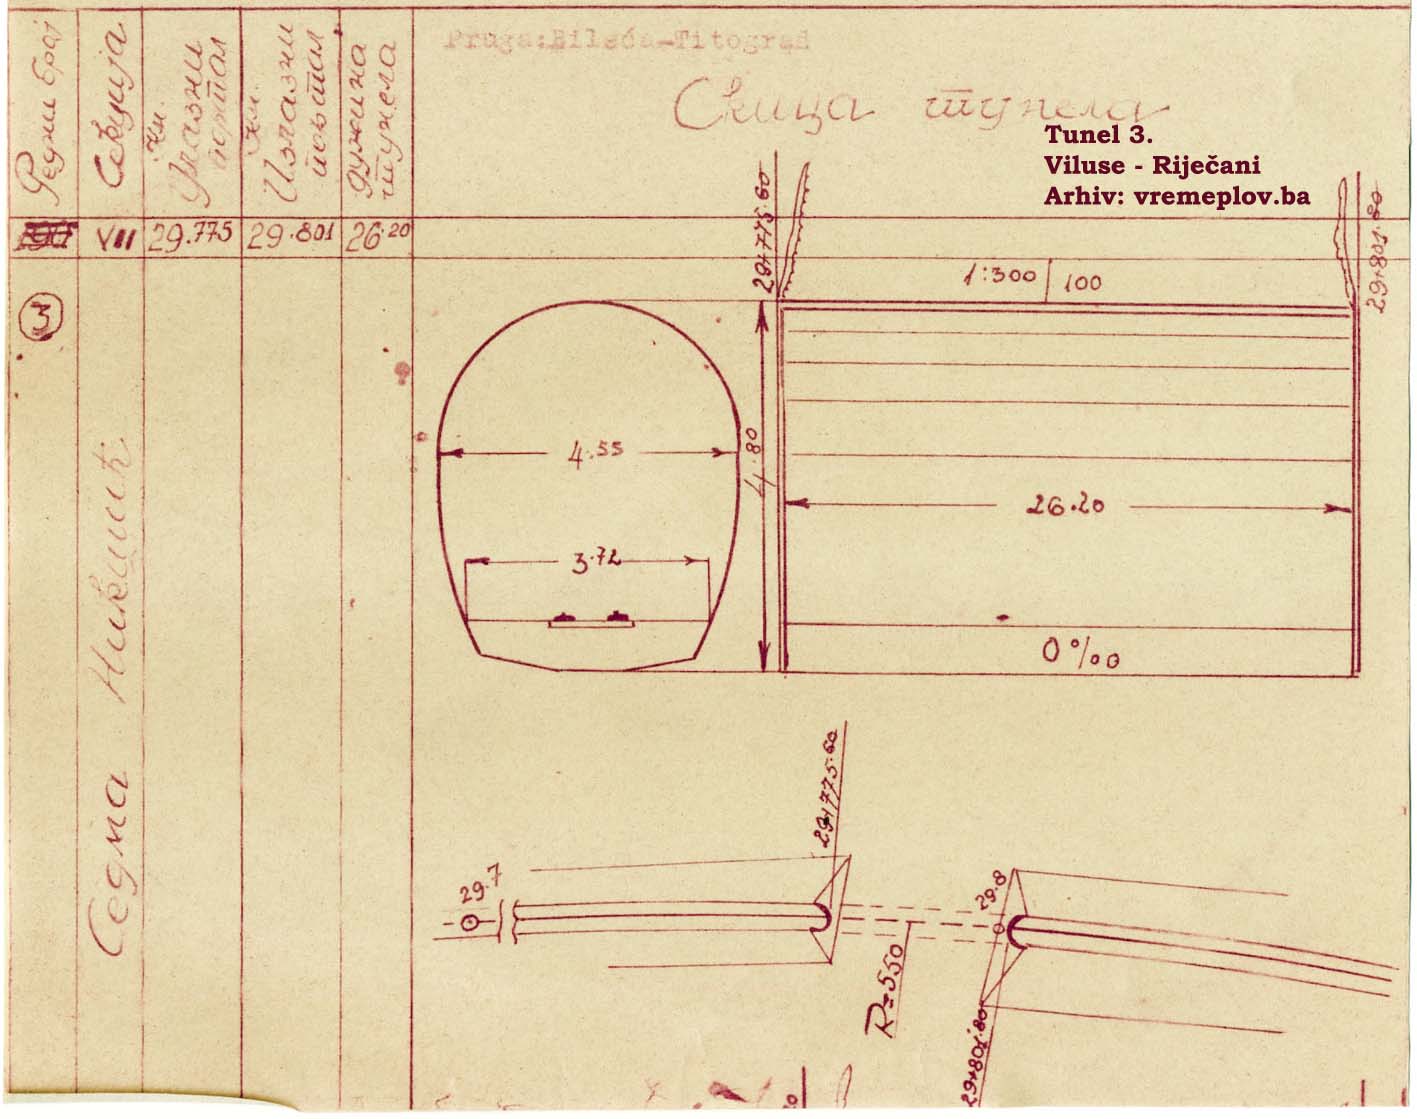 Pruga:Bileća-Titograd
Скица тунела
Tunel 3.
Viluse - Riječani
Arhiv: vremeplov.ba
Редни број
Секција
Км. Улазни портал
Км. Излазни портал
Дужина тунела
VII
29.775
29.801
26.20
3
Седма Никшић
29+775.60
29+801.80
1:300 | 100
4.55
4.80
26.20
3.72
0‰
29+775.60
29.7
29.8
R=550
29+801.80